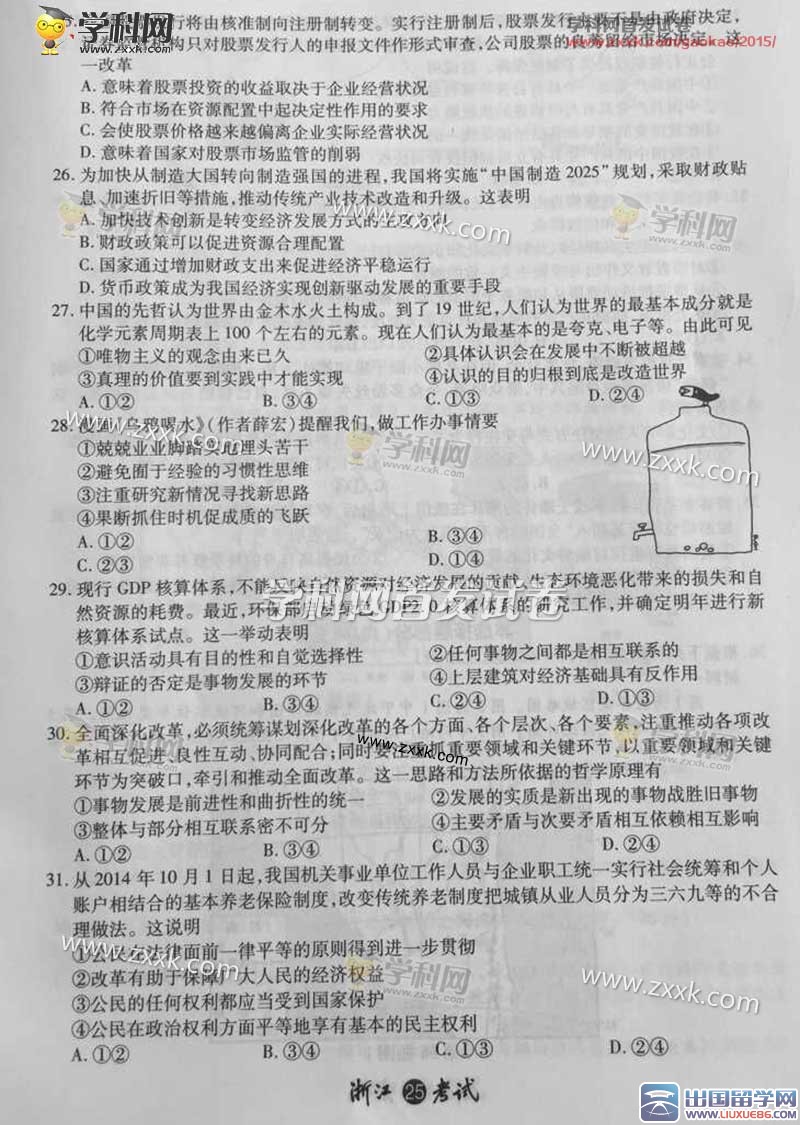 学科网首发试卷
行将由核准制向注册制转变。实行注册制后,股票发行主要不是由政府决定,
www.zxxk.com/gaokao/2015/
机构只对股票发行人的申报文件作形式审查,公司股票的良莠留给市场决定。这
一改革
A. 意味着股票投资的收益取决于企业经营状况
B. 符合市场在资源配置中起决定性作用的要求
C. 会使股票价格越来越偏离企业实际经营状况
D. 意味着国家对股票市场监管的削弱
26. 为加快从制造大国转向制造强国的进程,我国将实施“中国制造 2025”规划,采取财政贴
息、加速折旧等措施,推动传统产业技术改造和升级。这表明
A. 加快技术创新是转变经济发展方式的主攻方向
B. 财政政策可以促进资源合理配置
C. 国家通过增加财政支出来促进经济平稳运行
D. 货币政策成为我国经济实现创新驱动发展的重要手段
27. 中国的先哲认为世界由金木水火土构成。到了 19 世纪,人们认为世界的最基本成分就是
化学元素周期表上 100 个左右的元素。现在人们认为最基本的是夸克、电子等。由此可见
①唯物主义的观念由来已久 ②具体认识会在发展中不断被超越
③真理的价值要到实践中才能实现 ④认识的目的归根到底是改造世界
A. ①② B. ③④ C. ①③ D. ②④
28. 漫画《乌鸦喝水》(作者薛宏)提醒我们,做工作办事情要
①兢兢业业脚踏实地埋头苦干
②避免囿于经验的习惯性思维
③注重研究新情况寻找新思路
④果断抓住时机促成质的飞跃
A. ①② B. ③④
C. ②③ D. ①④
29. 现行 GDP 核算体系,不能反映自然资源对经济发展的贡献、生态环境恶化带来的损失和自
然资源的耗费。最近,环保部启动绿色 GDP2.0 核算体系的研究工作,并确定明年进行新
核算体系试点。这一举动表明
①意识活动具有目的性和自觉选择性 ②任何事物之间都是相互联系的
③辩证的否定是事物发展的环节 ④上层建筑对经济基础具有反作用
A. ①② B. ③④ C. ②④ D. ①③
30. 全面深化改革,必须统筹谋划深化改革的各个方面、各个层次、各个要素,注重推动各项改
革相互促进、良性互动、协同配合;同时要注重抓重要领域和关键环节,以重要领域和关键
环节为突破口,牵引和推动全面改革。这一思路和方法所依据的哲学原理有
①事物发展是前进性和曲折性的统一 ②发展的实质是新出现的事物战胜旧事物
③整体与部分相互联系密不可分 ④主要矛盾与次要矛盾相互依赖相互影响
A. ①② B. ③④ C. ①③ D. ②④
31. 从 2014 年 10 月 1 日起,我国机关事业单位工作人员与企业职工统一实行社会统筹和个人
账户相结合的基本养老保险制度,改变传统养老制度把城镇从业人员分为三六九等的不合
理做法。这说明
①公民在法律面前一律平等的原则得到进一步贯彻
②改革有助于保障广大人民的经济权益
③公民的任何权利都应当受到国家保护
④公民在政治权利方面平等地享有基本的民主权利
A. ①② B. ③④ C. ①③ D. ②④
浙江 25 考试
出国留学网
WWW.LIUXUE86.COM